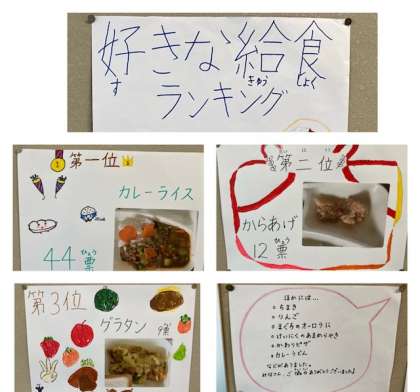 好きな給食
す きゅう しょく
ランキング
第一位
1
カレーライス
44票
ひょう
第二位
からあげ
12票
ひょう
第3位
グラタン
9票
ほかには…
ちまき
りんご
まぐろのオーロラに
けいにくのあまからやき
かわりピザ
カレーうどん
などがありました。